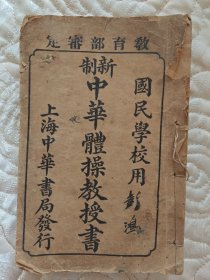 教育部審定
國民學校用
新制
中華體操教授書
上海中華書局發行